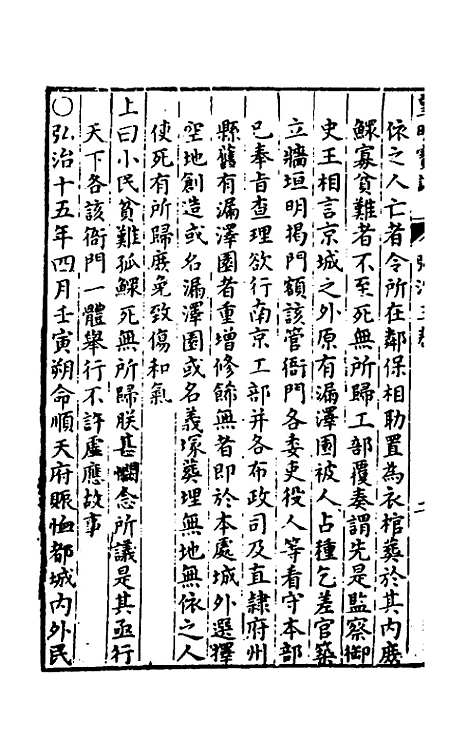 依之人亡者令所在鄰保相助置為衣棺葬於其內庶
鰥寡貧難者不至死無所歸工部覆奏謂先是監察御
史王相言京城之外原有漏澤園被人占種乞差官築
立牆垣明揭門額該管衙門各委吏役人等看守本部
已奉旨查理欲行南京工部并各布政司及直隸府州
縣舊有漏澤園者重增修飾無者即於本處城外選擇
空地創造或名漏澤園或名義塚葬埋無地無依之人
使死有所歸庶免致傷和氣
上曰小民貧難孤鰥死無所歸朕甚憫念所議是其亟行
天下各該衙門一體舉行不許虛應故事
○弘治十五年四月壬寅朔命順天府賑恤都城內外民